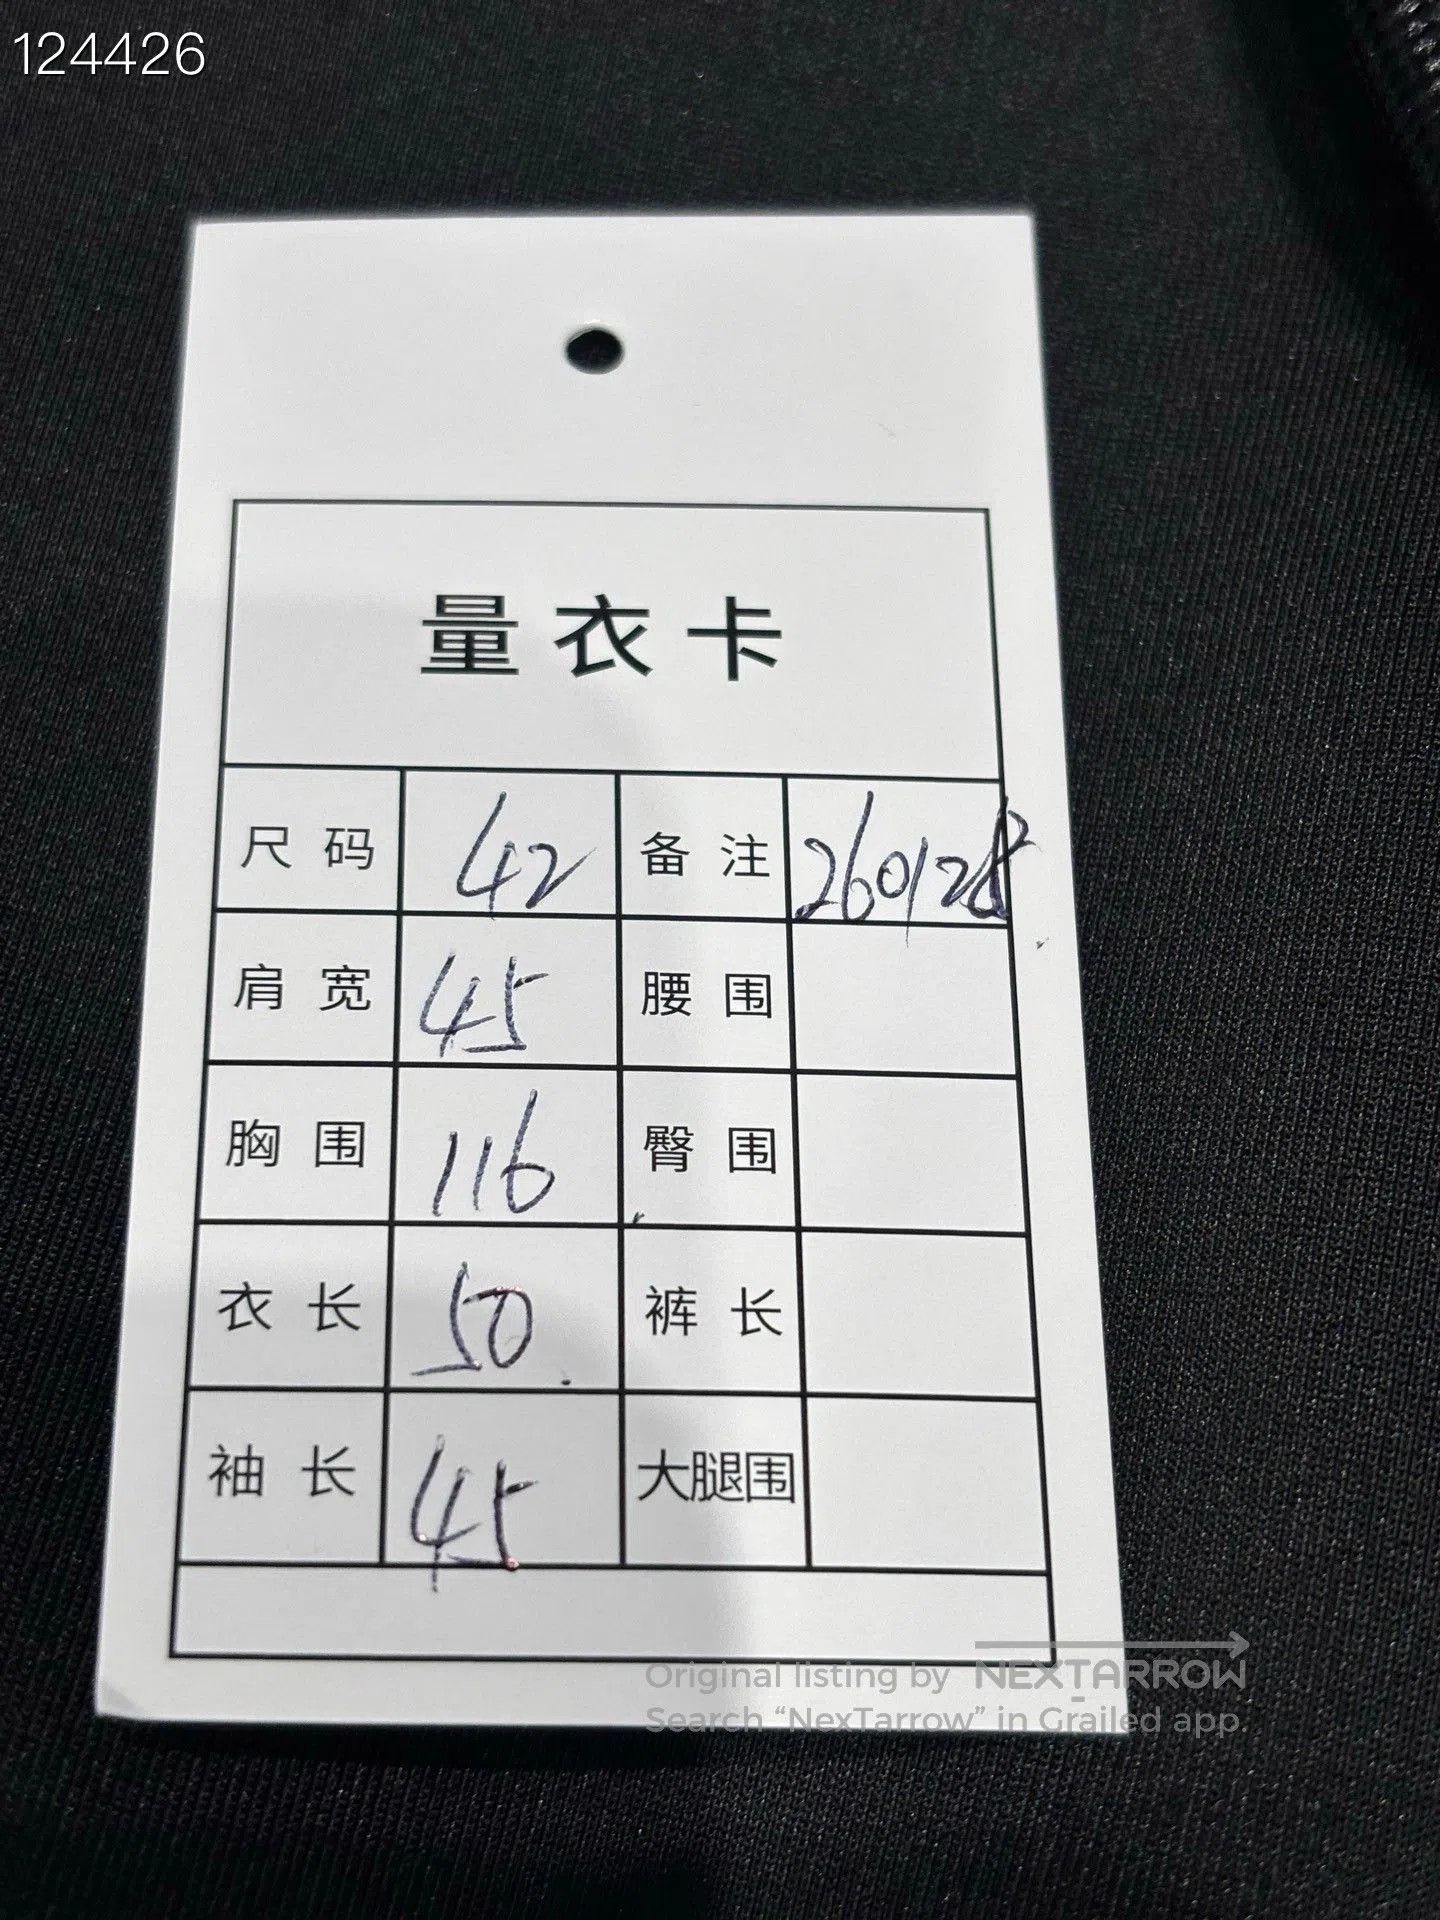 124426
量衣卡
尺码 42 备注 260128
肩宽 45 腰围
胸围 116 臀围
衣长 50 裤长
袖长 45 大腿围
Original listing by NEXTARROW
Search “NexTarrow” in Grailed app.